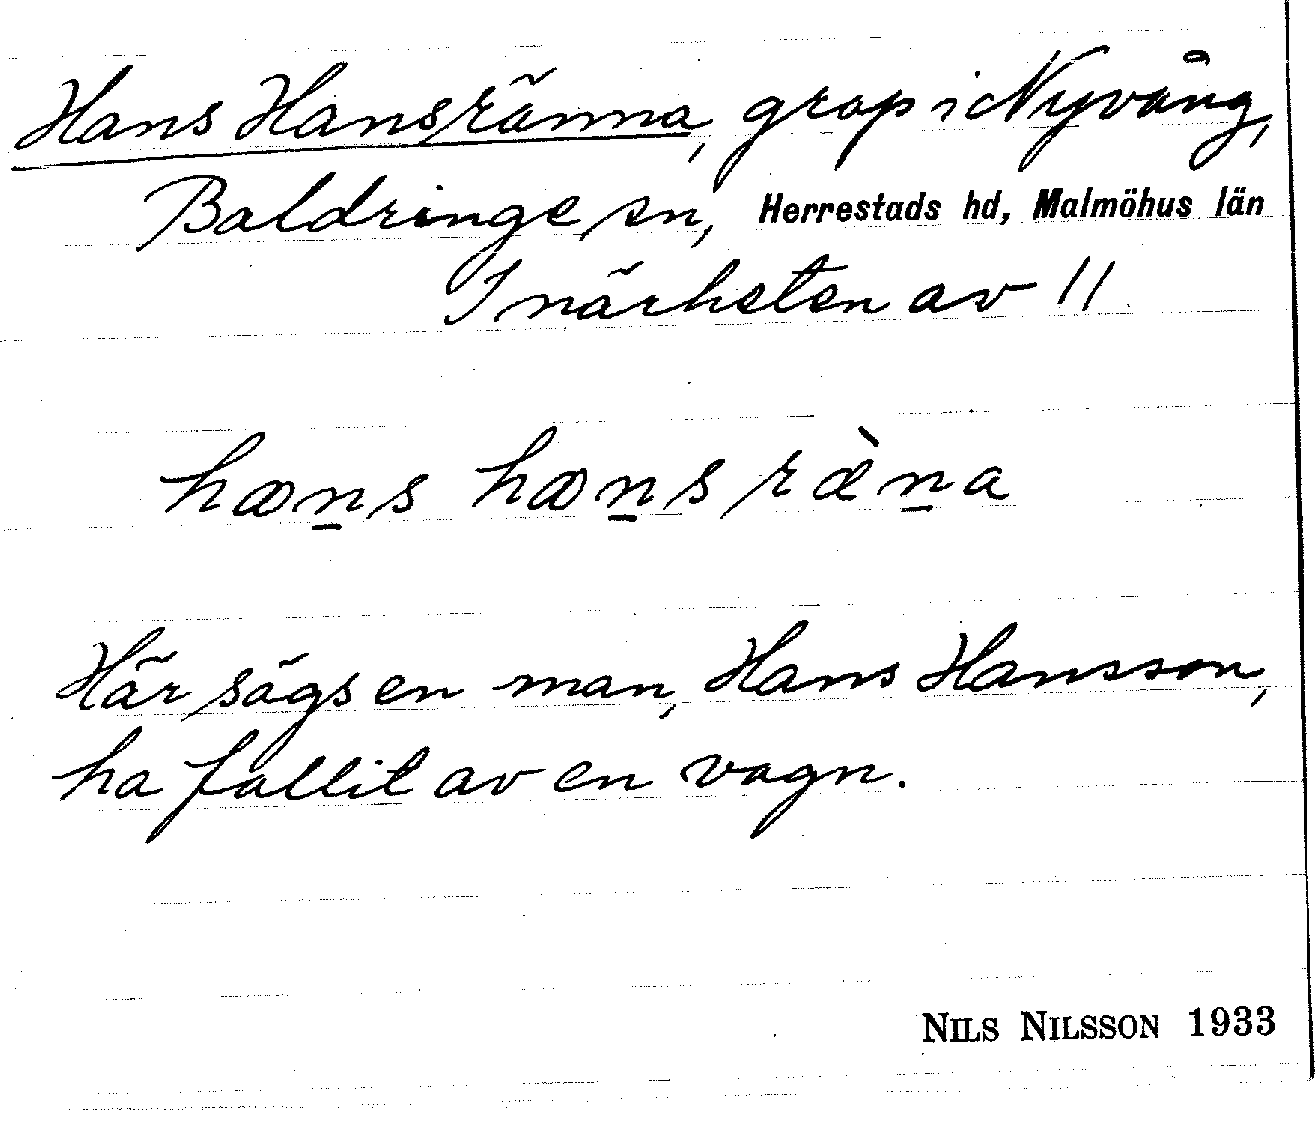 Hans Hansränna, grop i Nyvång,
Baldringe sn, Herrestads hd, Malmöhus län
I närheten av 11
hæṉs hæṉs ræ̀ṉa
Här sägs en man, Hans Hansson,
ha fallit av en vagn.
NILS NILSSON 1933